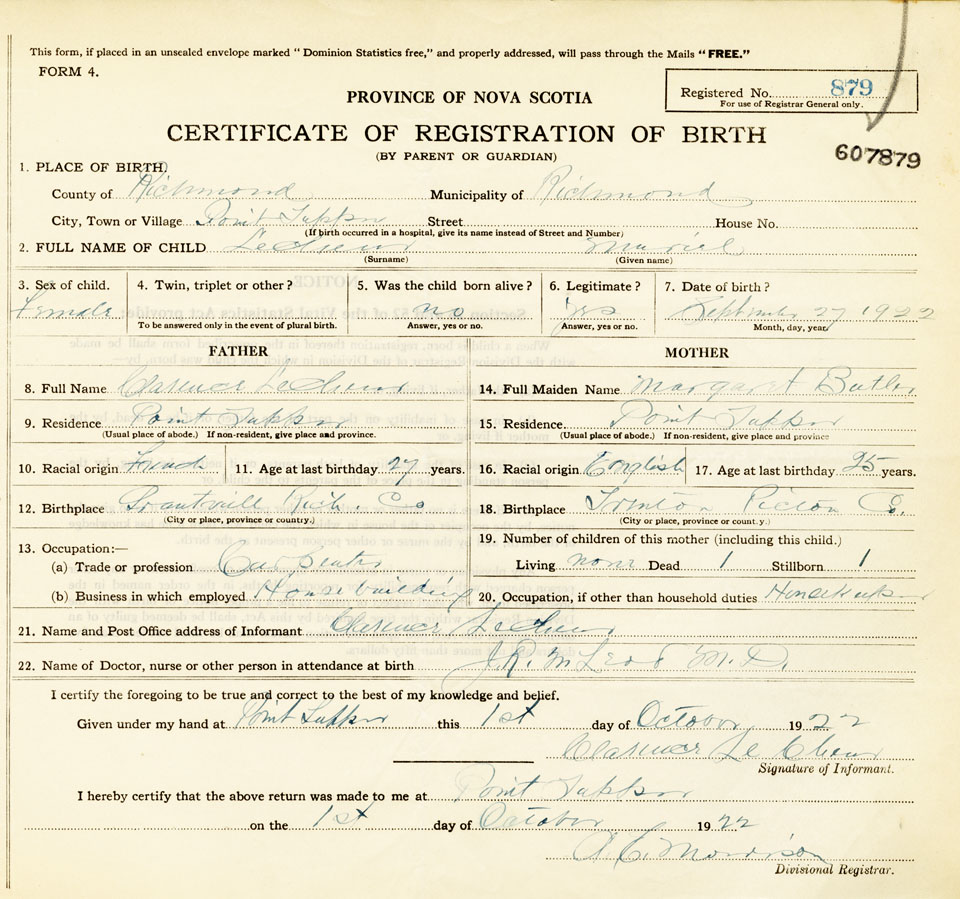 This form, if placed in an unsealed envelope marked "Dominion Statistics free," and properly addressed, will pass through the Mails "FREE."
FORM 4.
Registered No. 879
For use of Registrar General only.
PROVINCE OF NOVA SCOTIA
CERTIFICATE OF REGISTRATION OF BIRTH
(BY PARENT OR GUARDIAN)
607879
1. PLACE OF BIRTH)
County of Richmond Municipality of Richmond
City, Town or Village Point Tupper Street House No.
(If birth occurred in a hospital, give its name instead of Street and Number)
2. FULL NAME OF CHILD Muriel
(Surname) (Given name)
3. Sex of child. 4. Twin, triplet or other? 5. Was the child born alive? 6. Legitimate? 7. Date of birth?
Female no yes September 27 1922
To be answered only in the event of plural birth. Answer, yes or no. Answer, yes or no. Month, day, year.
FATHER MOTHER
8. Full Name Clarence 14. Full Maiden Name Margaret Butler
9. Residence Point Tupper 15. Residence Point Tupper
(Usual place of abode.) If non-resident, give place and province. (Usual place of abode.) If non-resident, give place and province
10. Racial origin French 11. Age at last birthday 27 years. 16. Racial origin English 17. Age at last birthday 25 years.
12. Birthplace Rich. Co 18. Birthplace Co.
(City or place, province or country.) (City or place, province or country.)
19. Number of children of this mother (including this child.)
13. Occupation:—
(a) Trade or profession Living none Dead 1 Stillborn 1
(b) Business in which employed Housebuilding 20. Occupation, if other than household duties
21. Name and Post Office address of Informant Clarence
22. Name of Doctor, nurse or other person in attendance at birth J.R. McLeod M.D.
I certify the foregoing to be true and correct to the best of my knowledge and belief.
Given under my hand at Point Tupper this 1st day of October 1922
Clarence
Signature of Informant.
I hereby certify that the above return was made to me at Point Tupper
on the 1st day of October 1922
Morrison
Divisional Registrar.